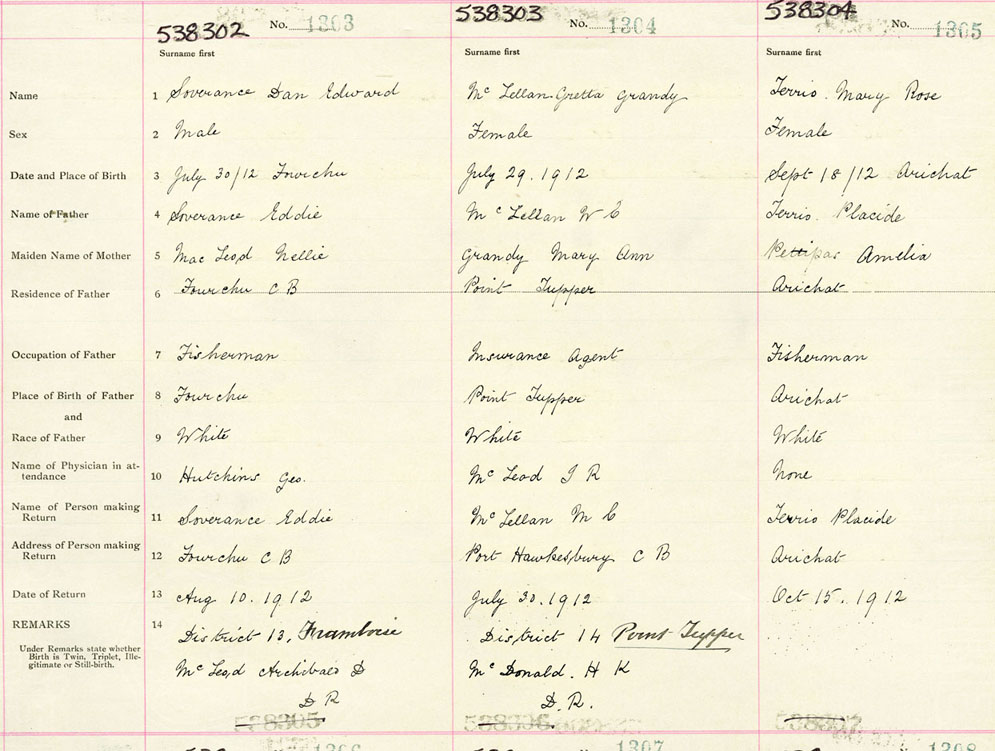 538302 No. 1303 538303 No. 1304 538304 No. 1305
Surname first Surname first Surname first
Name 1 Soverance Dan Edward Mc Lellan Gretta Grandy Terrio. Mary Rose
Sex 2 Male Female Female
Date and Place of Birth 3 July 30/12 Fourchu July 29. 1912 Sept 18/12 Arichat
Name of Father 4 Soverance Eddie Mc Lellan W C Terrio. Placide
Maiden Name of Mother 5 Mac Leod Nellie Grandy Mary Ann Pettipas Amelia
Residence of Father 6 Fourchu C B Point Tupper Arichat
Occupation of Father 7 Fisherman Insurance Agent Fisherman
Place of Birth of Father 8 Fourchu Point Tupper Arichat
and
Race of Father 9 White White White
Name of Physician in at-
tendance 10 Hutchins Geo. Mc Leod J R None
Name of Person making
Return 11 Soverance Eddie Mc Lellan M C Terrio Placide
Address of Person making
Return 12 Fourchu C B Port Hawkesbury C B Arichat
Date of Return 13 Aug 10. 1912 July 30. 1912 Oct 15. 1912
REMARKS 14 District 13, Framboise District 14 Point Tupper
Under Remarks state whether
Birth is Twin, Triplet, Ille-
gitimate or Still-birth.
Mc Leod Archibald D Mc Donald. H K
D R D. R.
538305 538306 538307
1306 1307 1308